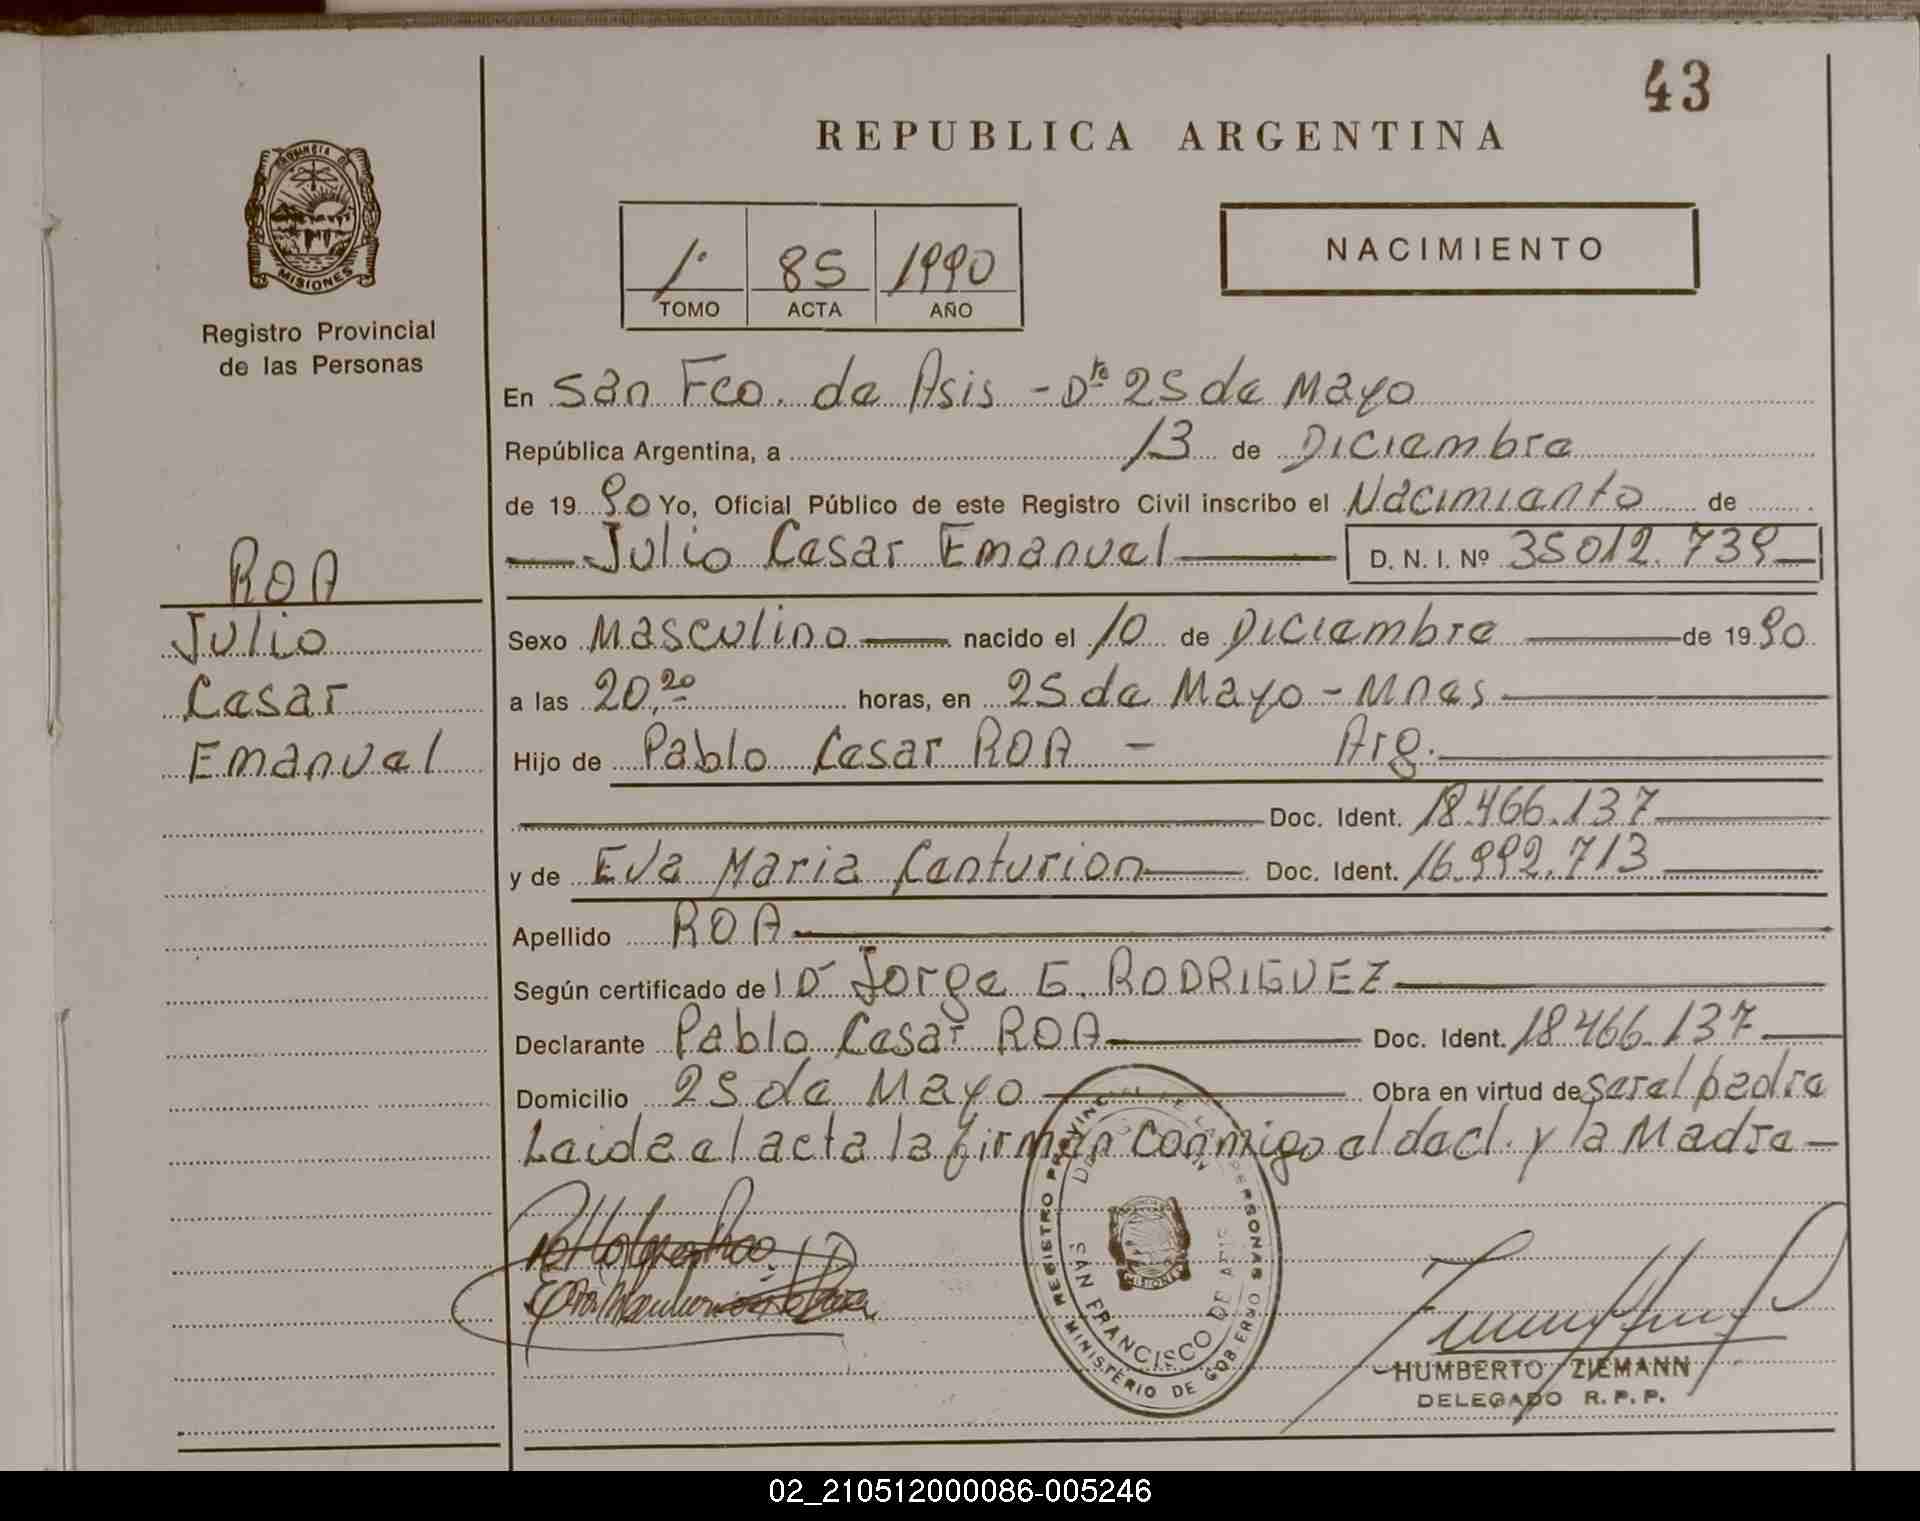 43
REPUBLICA ARGENTINA
PROVINCIA DE
MISIONES
Registro Provincial
de las Personas
1º 85 1990
TOMO ACTA AÑO
NACIMIENTO
En San Fco. de Asis - Dto 25 de Mayo
República Argentina, a 13 de Diciembre
de 1990 Yo, Oficial Público de este Registro Civil inscribo el Nacimiento de
Julio Cesar Emanuel D. N. I. Nº 35012.739
ROA
Julio
Cesar
Emanuel
Sexo Masculino nacido el 10 de Diciembre de 1990
a las 20,20 horas, en 25 de Mayo - Mnes
Hijo de Pablo Cesar ROA - Arg.
Doc. Ident. 18.466.137
y de Eva Maria Centurion Doc. Ident. 16.992.713
Apellido ROA
Según certificado de Jorge G. RODRIGUEZ
Declarante Pablo Cesar ROA Doc. Ident. 18466.137
Domicilio 25 de Mayo Obra en virtud de ser el padre
Leida el acta la firman conmigo el decl. y la Madre
REGISTRO PROVINCIAL DE LAS PERSONAS
MINISTERIO DE GOBIERNO
SAN FRANCISCO DE ASIS
MISIONES
HUMBERTO ZIEMANN
DELEGADO R.P.P.
02_210512000086-005246